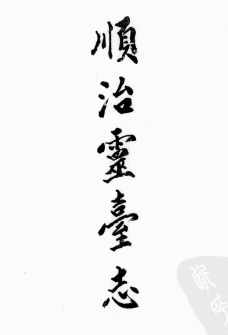 順治靈臺志